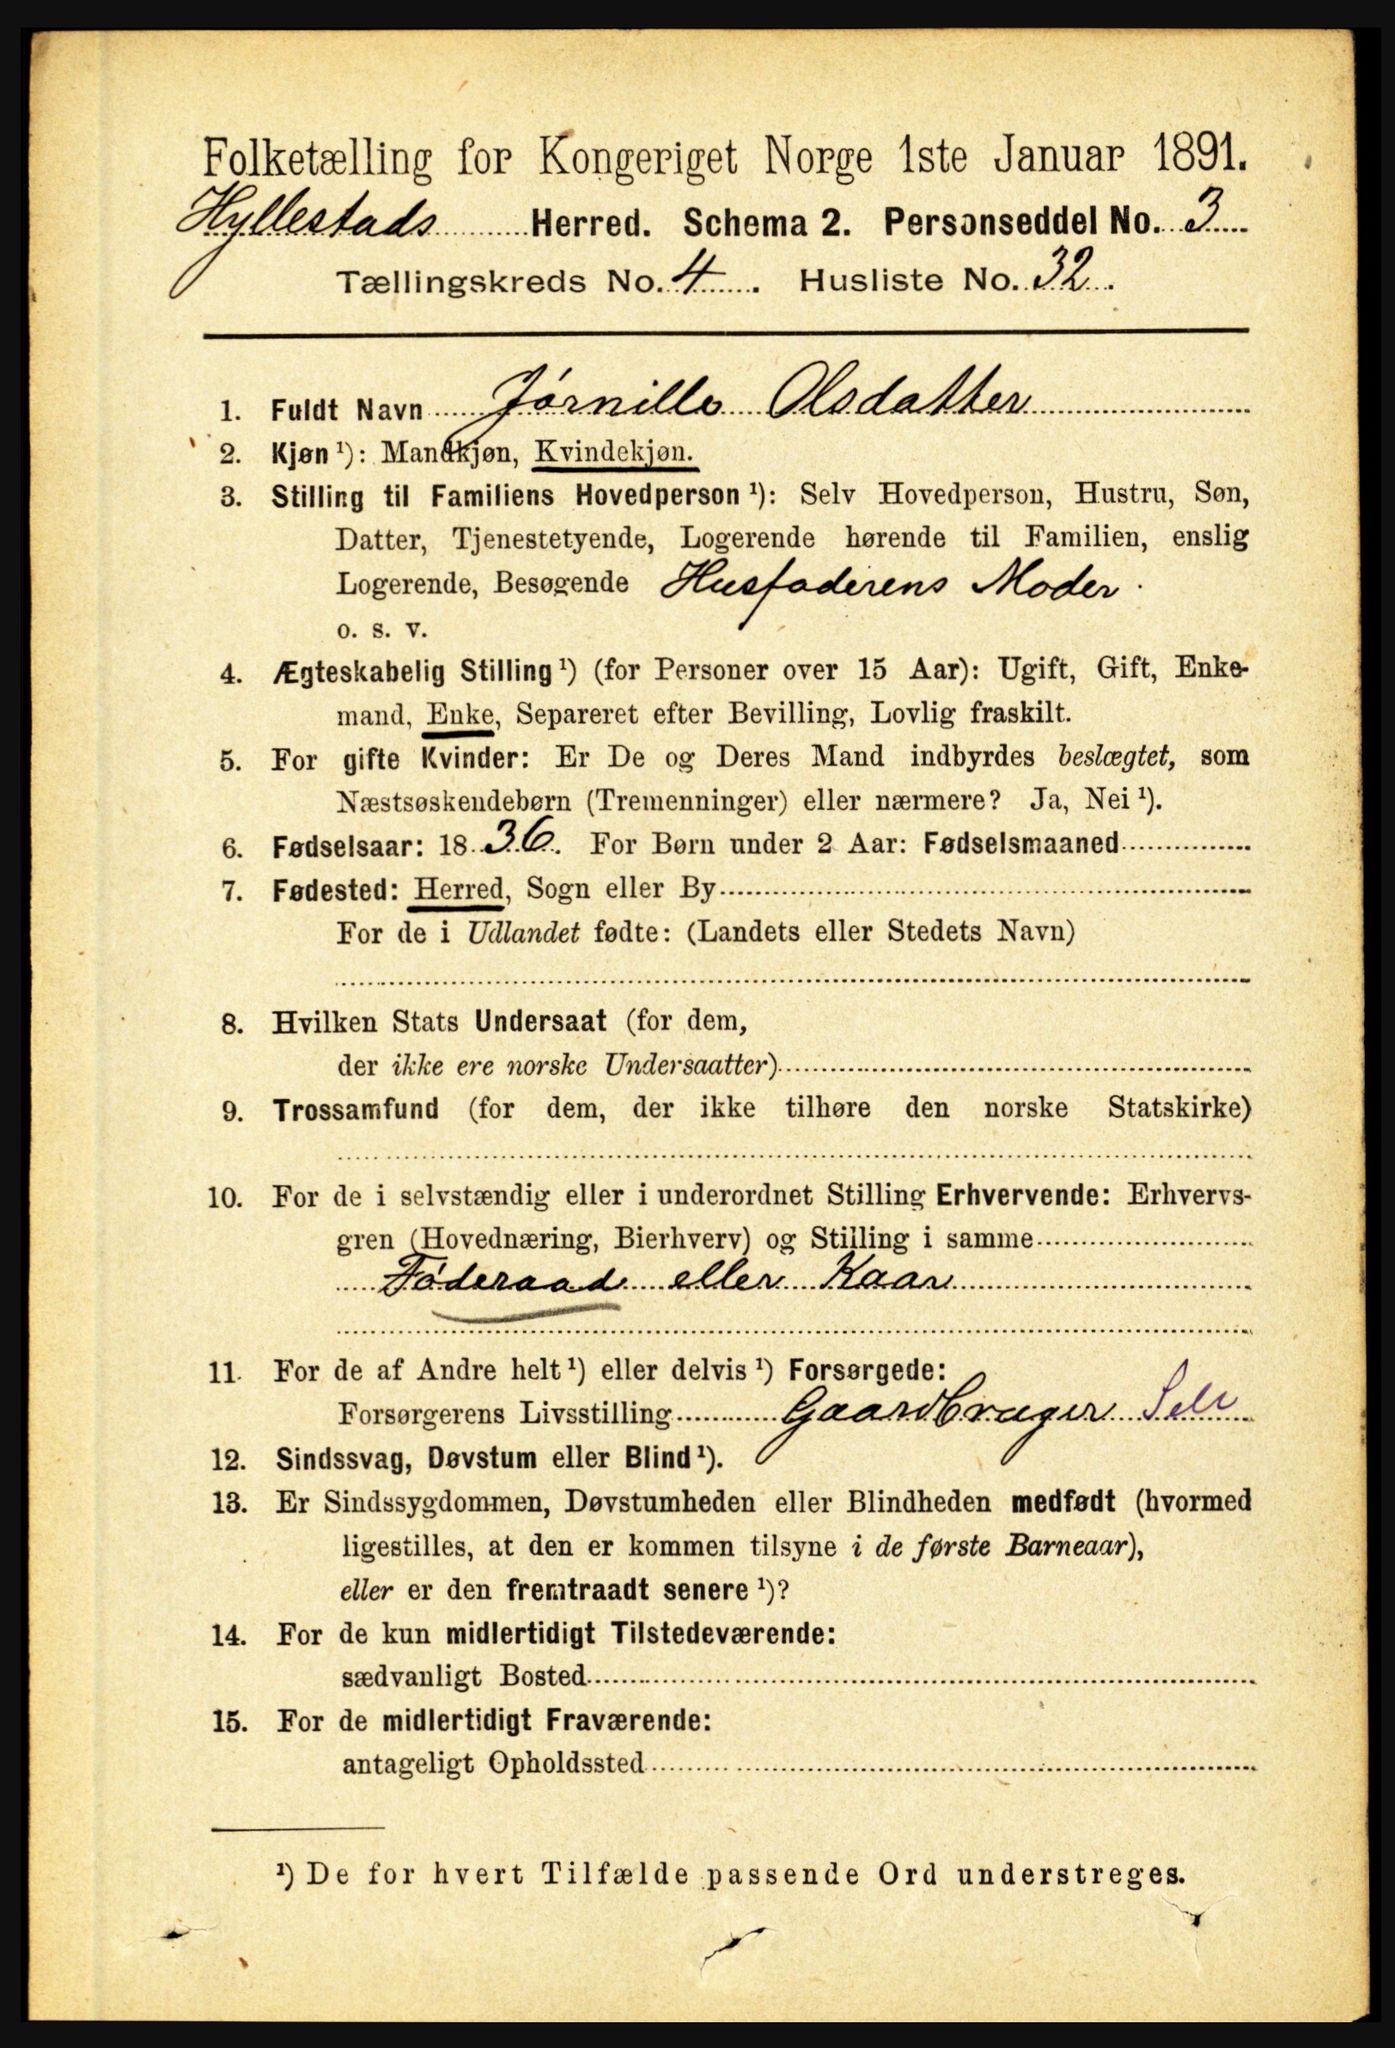 Folketælling for Kongeriget Norge 1ste Januar 1891.
Hyllestads Herred. Schema 2. Personseddel No. 3
Tællingskreds No. 4. Husliste No. 32.
1. Fuldt Navn Jørnille Olsdatter
2. Kjøn ¹): Mandkjøn, Kvindekjøn.
3. Stilling til Familiens Hovedperson ¹): Selv Hovedperson, Hustru, Søn,
Datter, Tjenestetyende, Logerende hørende til Familien, enslig
Logerende, Besøgende Husfaderens Moder
o. s. v.
4. Ægteskabelig Stilling ¹) (for Personer over 15 Aar): Ugift, Gift, Enke-
mand, Enke, Separeret efter Bevilling, Lovlig fraskilt.
5. For gifte Kvinder: Er De og Deres Mand indbyrdes beslægtet, som
Næstsøskendebørn (Tremenninger) eller nærmere? Ja, Nei ¹).
6. Fødselsaar: 1836. For Børn under 2 Aar: Fødselsmaaned
7. Fødested: Herred, Sogn eller By
For de i Udlandet fødte: (Landets eller Stedets Navn)
8. Hvilken Stats Undersaat (for dem,
der ikke ere norske Undersaatter)
9. Trossamfund (for dem, der ikke tilhøre den norske Statskirke)
10. For de i selvstændig eller i underordnet Stilling Erhvervende: Erhvervs-
gren (Hovednæring, Bierhverv) og Stilling i samme
Føderaad eller Kaar
11. For de af Andre helt ¹) eller delvis ¹) Forsørgede:
Forsørgerens Livsstilling Gaardbruger Selv
12. Sindssvag, Døvstum eller Blind ¹).
13. Er Sindssygdommen, Døvstumheden eller Blindheden medfødt (hvormed
ligestilles, at den er kommen tilsyne i de første Barneaar),
eller er den fremtraadt senere ¹)?
14. For de kun midlertidigt Tilstedeværende:
sædvanligt Bosted
15. For de midlertidigt Fraværende:
antageligt Opholdssted
¹) De for hvert Tilfælde passende Ord understreges.